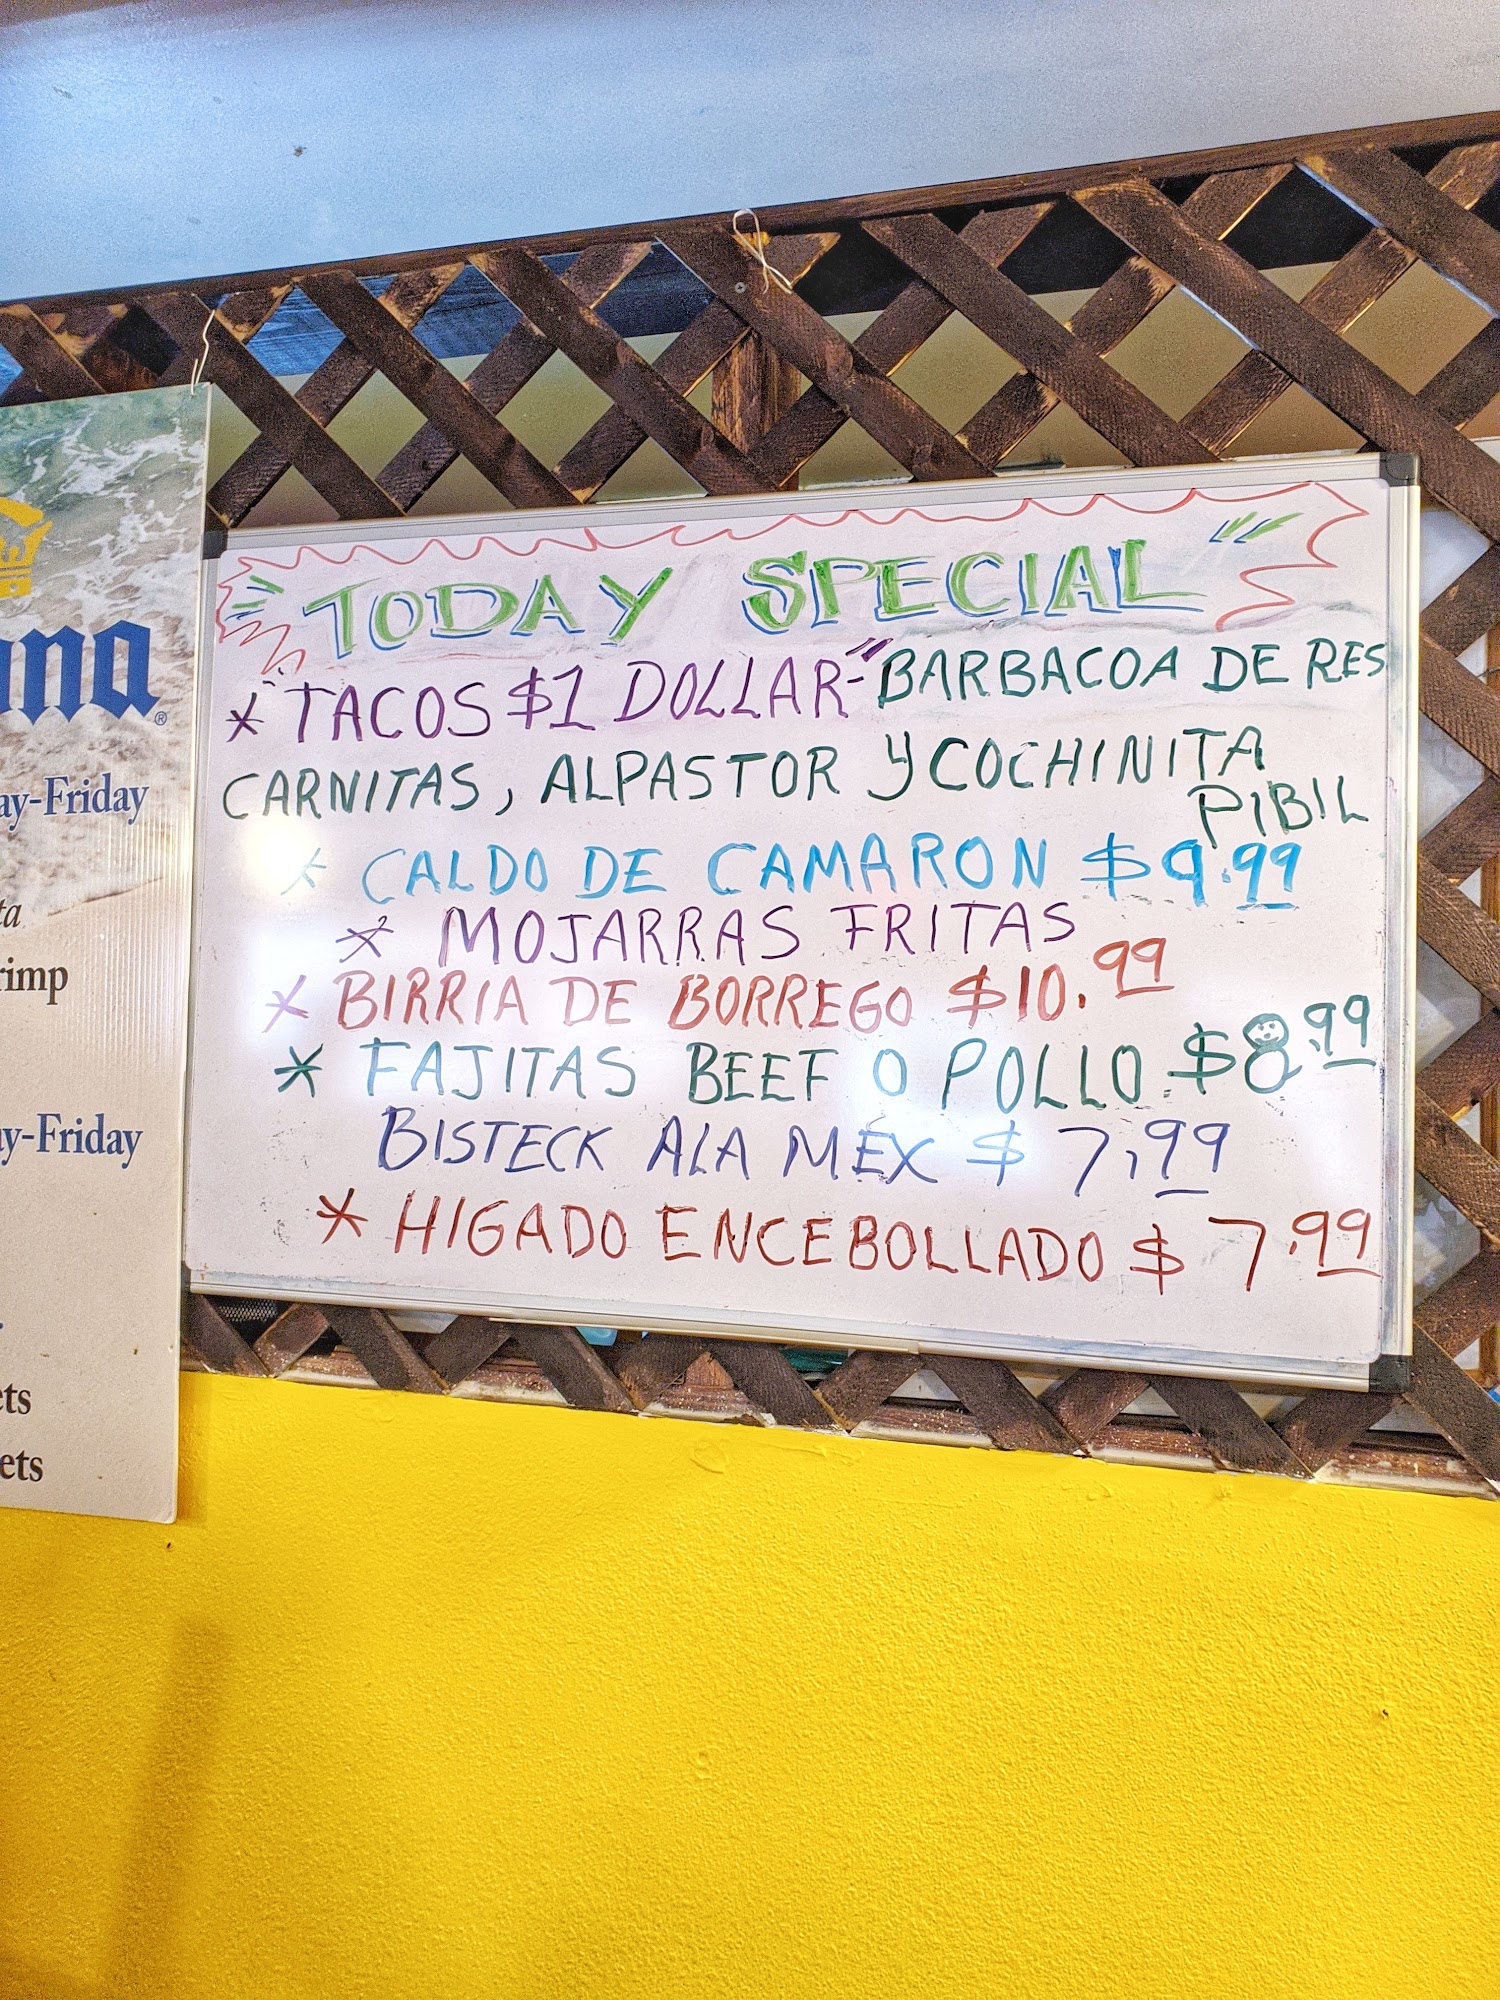 TODAY SPECIAL
* "TACOS $1 DOLLAR-" BARBACOA DE RES
CARNITAS, ALPASTOR Y COCHINITA
PIBIL
* CALDO DE CAMARON $9.99
* MOJARRAS FRITAS
* BIRRIA DE BORREGO $10.99
* FAJITAS BEEF O POLLO $8.99
BISTECK ALA MÉX $7,99
* HIGADO ENCEBOLLADO $7.99
una®
ay-Friday
ta
rimp
ay-Friday
ets
ets